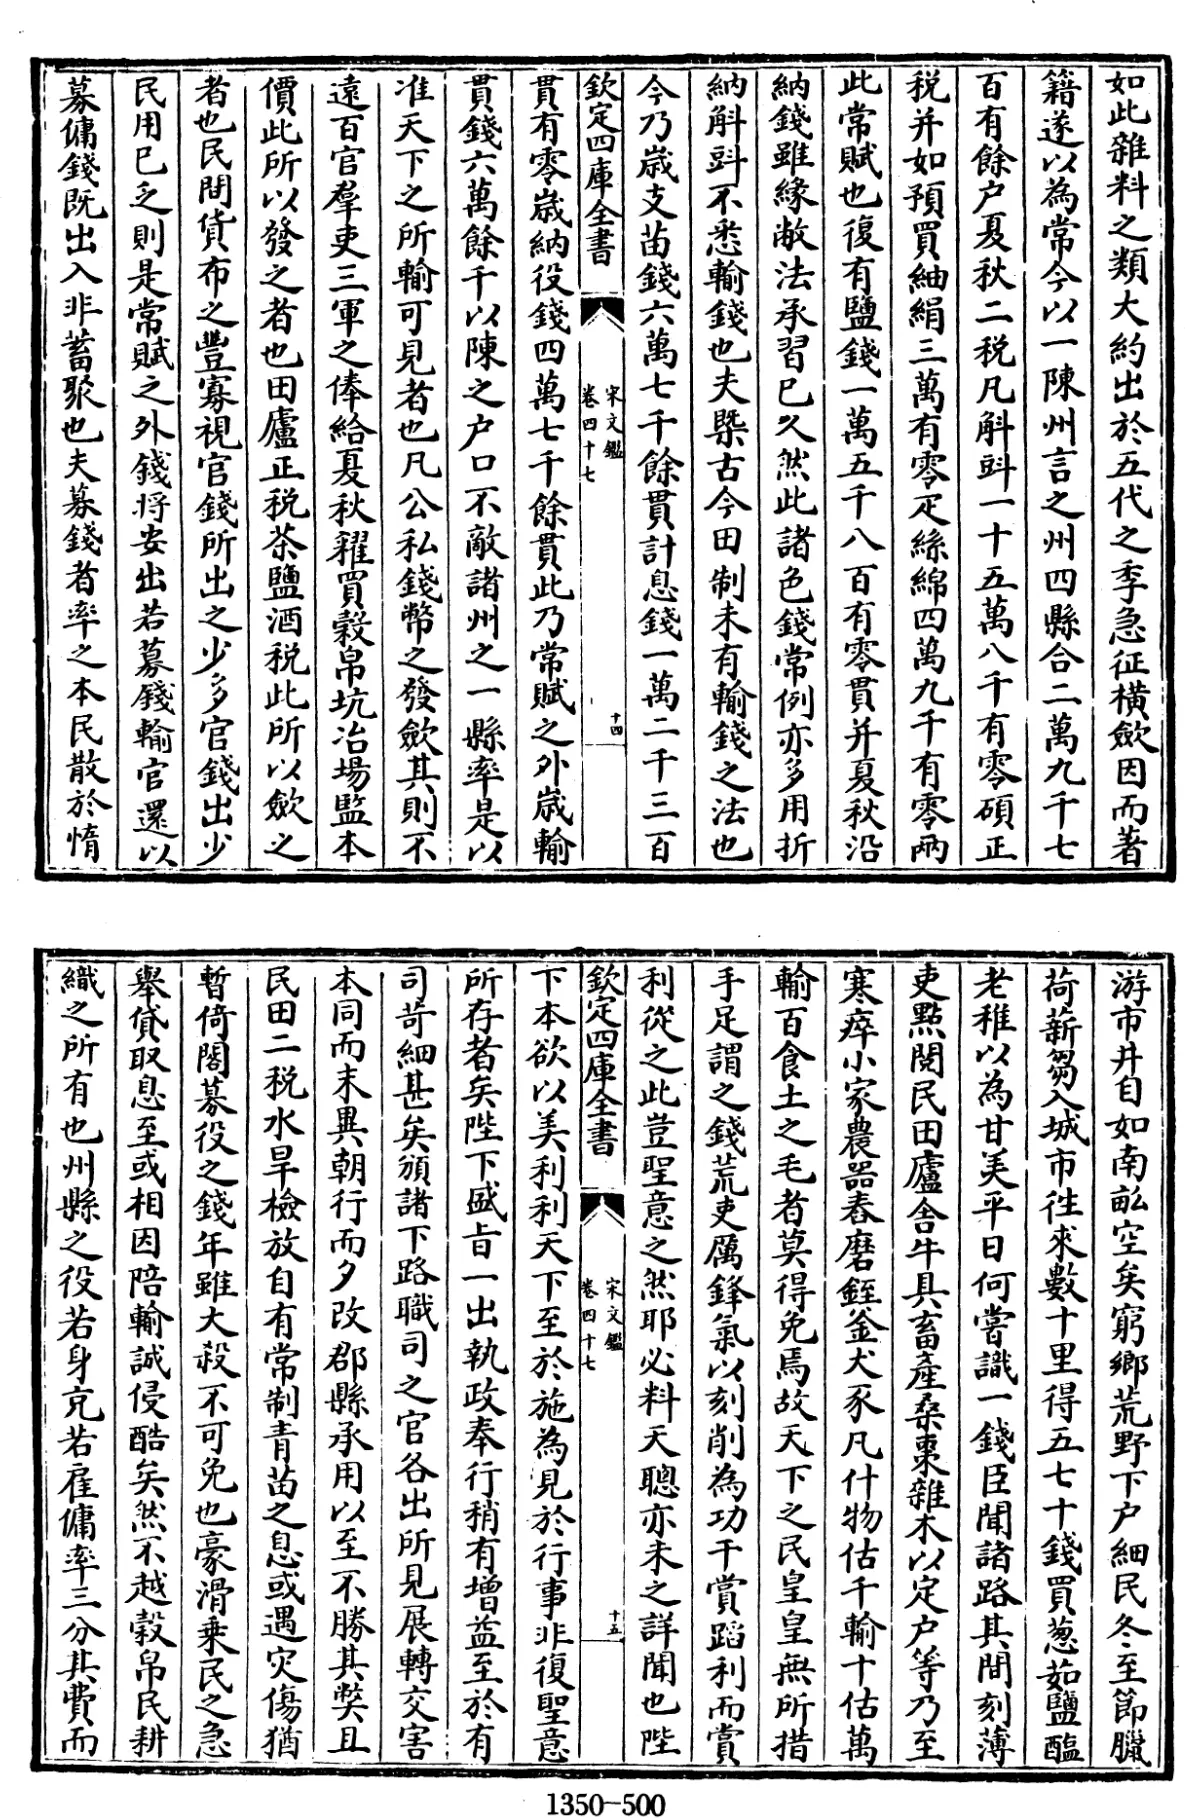 如此雜料之類大約出於五代之季急征橫歛因而著
籍遂以為常今以一陳州言之州四縣合二萬九千七
百有餘户夏秋二税凡斛㪷一十五萬八千有零碩正
税并如預買紬絹三萬有零疋絲綿四萬九千有零兩
此常賦也復有鹽錢一萬五千八百有零貫并夏秋沿
納錢雖緣敝法承習已久然此諸色錢常例亦多用折
納斛㪷不悉輸錢也夫槩古今田制未有輸錢之法也
今乃歲支苗錢六萬七千餘貫計息錢一萬二千三百
欽定四庫全書
宋文鑑
卷四十七
十四
貫有零歲納役錢四萬七千餘貫此乃常賦之外歲輸
貫錢六萬餘千以陳之户口不敵諸州之一縣率是以
准天下之所輸可見者也凡公私錢幣之發歛其則不
遠百官羣吏三軍之俸給夏秋糴買穀帛坑冶場監本
價此所以發之者也田廬正税茶鹽酒税此所以歛之
者也民間貨布之豐寡視官錢所出之少多官錢出少
民用已乏則是常賦之外錢将安出若募錢輸官還以
募傭錢既出入非蓄聚也夫募錢者率之本民散於惰
游市井自如南畝空矣窮鄉荒野下户細民冬至節臘
荷薪芻入城市徃來數十里得五七十錢買葱茹鹽醢
老稚以為甘美平日何嘗識一錢臣聞諸路其間刻薄
吏點閱民田廬舍牛具畜產桑棗雜木以定户等乃至
寒瘁小家農器舂磨銍釜犬豕凡什物估千輸十估萬
輸百食土之毛者莫得免焉故天下之民皇皇無所措
手足謂之錢荒吏厲鋒氣以刻削為功干賞蹈利而賞
利從之此豈聖意之然耶必料天聰亦未之詳聞也陛
欽定四庫全書
宋文鑑
卷四十七
十五
下本欲以美利利天下至於施為見於行事非復聖意
所存者矣陛下盛旨一出執政奉行稍有增益至於有
司苛細甚矣頒諸下路職司之官各出所見展轉交害
本同而末異朝行而夕改郡縣承用以至不勝其獘且
民田二税水旱檢放自有常制青苗之息或遇灾傷猶
暫倚閣募役之錢年雖大殺不可免也豪滑乗民之急
舉貸取息至或相因陪輸誠侵酷矣然不越穀帛民耕
織之所有也州縣之役若身充若雇傭率三分其費而
1350-500